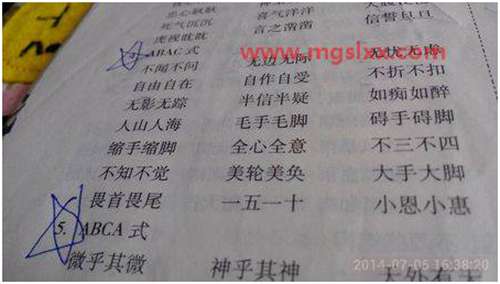 忠心耿耿
死气沉沉 喜气洋洋 信誓旦旦
虎视眈眈 言之凿凿
ABAC 式 www.mgslxx.com
不闻不问 无边无际 无忧无虑
自由自在 自作自受 不折不扣
无影无踪 半信半疑 如痴如醉
人山人海 毛手毛脚 碍手碍脚
缩手缩脚 全心全意 不三不四
不知不觉 美轮美奂 大手大脚
畏首畏尾 一五一十 小恩小惠
5. ABCA 式
微乎其微 神乎其神 天外有天
2014-07-05 16:38:20